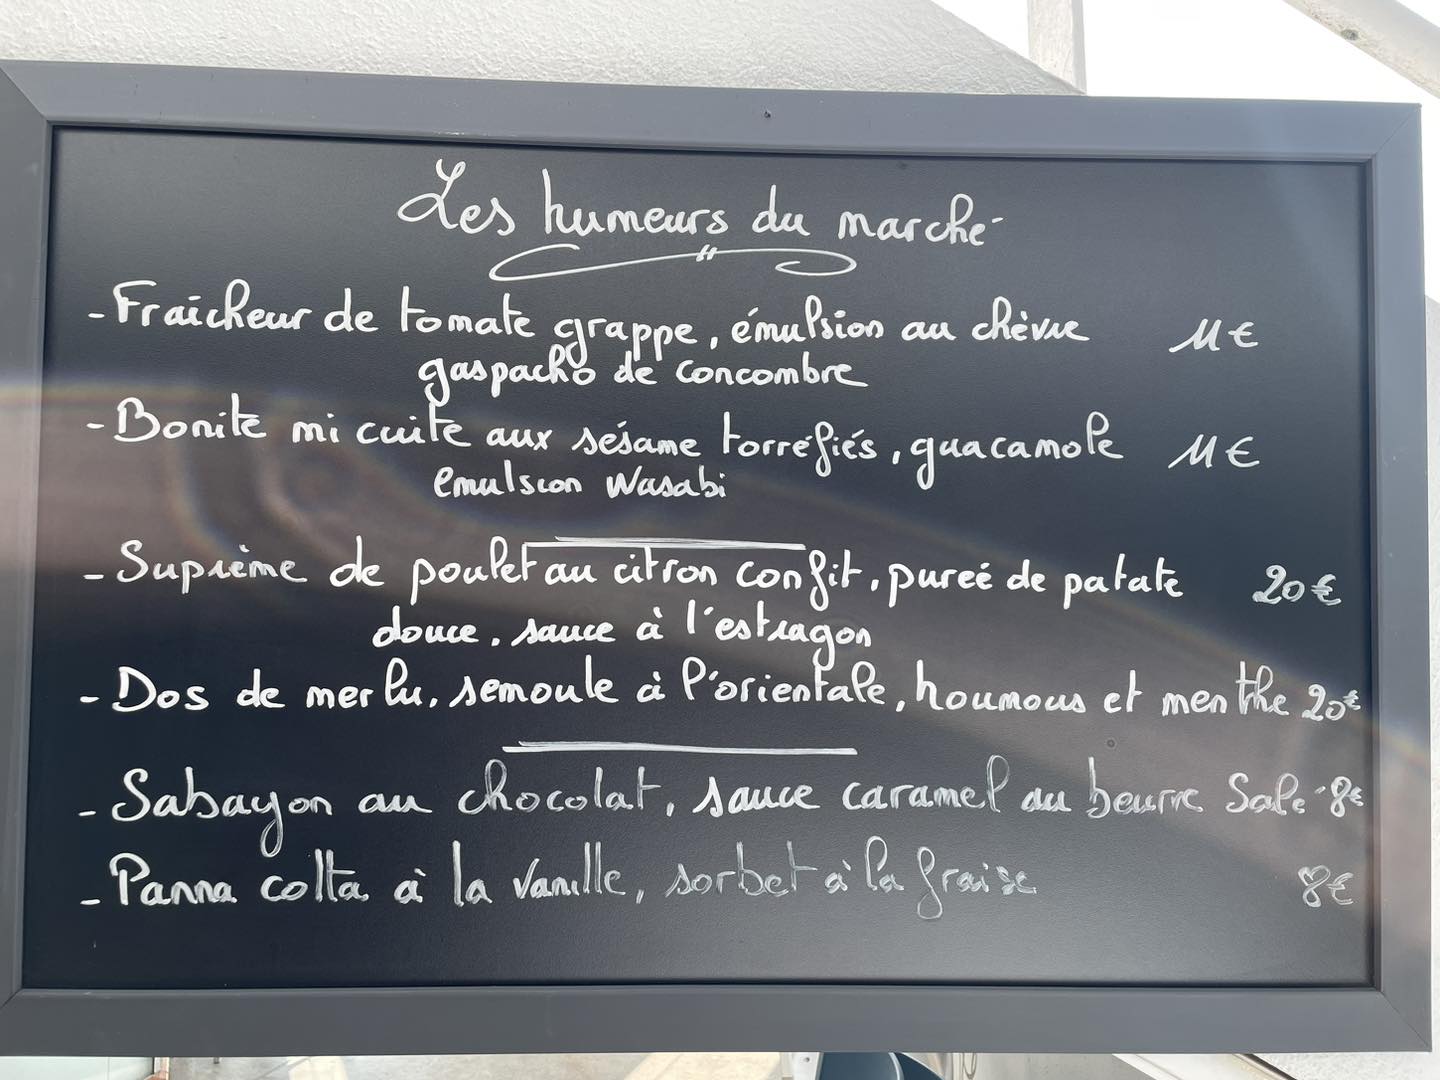 Les humeurs du marché
- Fraicheur de tomate grappe, émulsion au chèvre 11€
gaspacho de concombre
- Bonite mi cuite aux sésame torréfiés, guacamole 11€
emulsion Wasabi
- Suprème de poulet au citron confit, pureé de patate 20€
douce, sauce à l'estragon
- Dos de merlu, semoule à l'orientale, houmous et menthe 20€
- Sabayon au chocolat, sauce caramel au beurre Salé 8€
- Panna colta à la vanille, sorbet à la fraise 8€